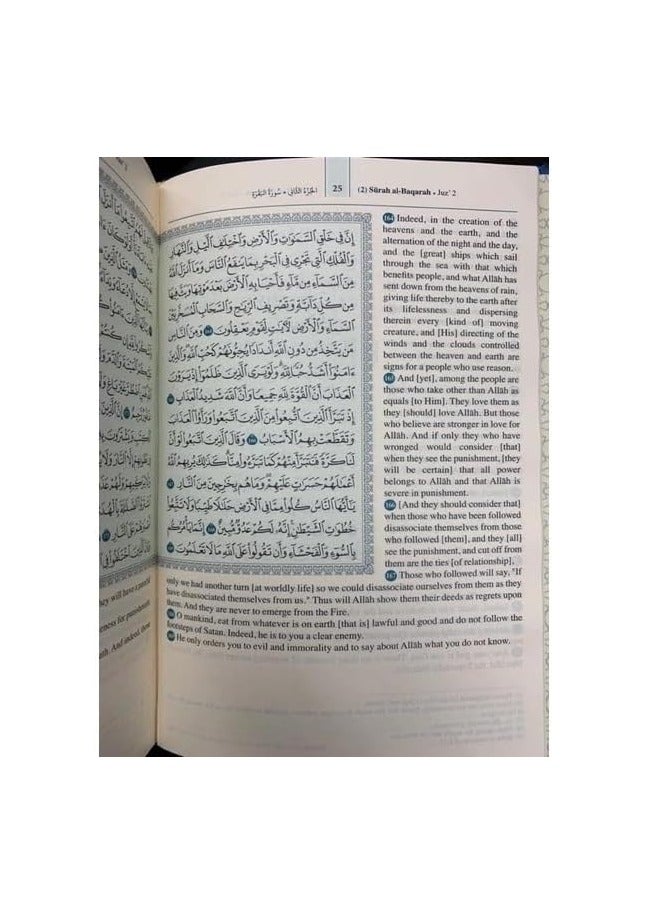 الجزء الثاني • سورة البقرة 25 (2) Sūrah al-Baqarah • Juz' 2
إِنَّ فِي خَلْقِ ٱلسَّمَٰوَٰتِ وَٱلْأَرْضِ وَٱخْتِلَٰفِ ٱلَّيْلِ وَٱلنَّهَارِ
وَٱلْفُلْكِ ٱلَّتِي تَجْرِي فِي ٱلْبَحْرِ بِمَا يَنفَعُ ٱلنَّاسَ وَمَآ أَنزَلَ ٱللَّهُ
مِنَ ٱلسَّمَآءِ مِن مَّآءٍ فَأَحْيَا بِهِ ٱلْأَرْضَ بَعْدَ مَوْتِهَا وَبَثَّ فِيهَا
مِن كُلِّ دَآبَّةٍ وَتَصْرِيفِ ٱلرِّيَٰحِ وَٱلسَّحَابِ ٱلْمُسَخَّرِ بَيْنَ
ٱلسَّمَآءِ وَٱلْأَرْضِ لَأٓيَٰتٍ لِّقَوْمٍ يَعْقِلُونَ ١٦٤ وَمِنَ ٱلنَّاسِ
مَن يَتَّخِذُ مِن دُونِ ٱللَّهِ أَندَادًا يُحِبُّونَهُمْ كَحُبِّ ٱللَّهِ وَٱلَّذِينَ
ءَامَنُوٓا۟ أَشَدُّ حُبًّا لِّلَّهِ وَلَوْ يَرَى ٱلَّذِينَ ظَلَمُوٓا۟ إِذْ يَرَوْنَ
ٱلْعَذَابَ أَنَّ ٱلْقُوَّةَ لِلَّهِ جَمِيعًا وَأَنَّ ٱللَّهَ شَدِيدُ ٱلْعَذَابِ ١٦٥
إِذْ تَبَرَّأَ ٱلَّذِينَ ٱتُّبِعُوا۟ مِنَ ٱلَّذِينَ ٱتَّبَعُوا۟ وَرَأَوُا۟ ٱلْعَذَابَ
وَتَقَطَّعَتْ بِهِمُ ٱلْأَسْبَابُ ١٦٦ وَقَالَ ٱلَّذِينَ ٱتَّبَعُوا۟ لَوْ أَنَّ
لَنَا كَرَّةً فَنَتَبَرَّأَ مِنْهُمْ كَمَا تَبَرَّءُوا۟ مِنَّا كَذَٰلِكَ يُرِيهِمُ ٱللَّهُ
أَعْمَٰلَهُمْ حَسَرَٰتٍ عَلَيْهِمْ وَمَا هُم بِخَٰرِجِينَ مِنَ ٱلنَّارِ ١٦٧
يَٰٓأَيُّهَا ٱلنَّاسُ كُلُوا۟ مِمَّا فِي ٱلْأَرْضِ حَلَٰلًا طَيِّبًا وَلَا تَتَّبِعُوا۟
خُطُوَٰتِ ٱلشَّيْطَٰنِ إِنَّهُۥ لَكُمْ عَدُوٌّ مُّبِينٌ ١٦٨ إِنَّمَا يَأْمُرُكُم
بِٱلسُّوٓءِ وَٱلْفَحْشَآءِ وَأَن تَقُولُوا۟ عَلَى ٱللَّهِ مَا لَا تَعْلَمُونَ ١٦٩
164 Indeed, in the creation of the
heavens and the earth, and the
alternation of the night and the day,
and the [great] ships which sail
through the sea with that which
benefits people, and what Allāh has
sent down from the heavens of rain,
giving life thereby to the earth after
its lifelessness and dispersing
therein every [kind of] moving
creature, and [His] directing of the
winds and the clouds controlled
between the heaven and earth are
signs for a people who use reason.
165 And [yet], among the people are
those who take other than Allāh as
equals [to Him]. They love them as
they [should] love Allāh. But those
who believe are stronger in love for
Allāh. And if only they who have
wronged would consider [that]
when they see the punishment, [they
will be certain] that all power
belongs to Allāh and that Allāh is
severe in punishment.
166 [And they should consider that]
when those who have been followed
disassociate themselves from those
who followed [them], and they [all]
see the punishment, and cut off from
them are the ties [of relationship],
167 Those who followed will say, "If
only we had another turn [at worldly life] so we could disassociate ourselves from them as they
have disassociated themselves from us." Thus will Allāh show them their deeds as regrets upon
them. And they are never to emerge from the Fire.
168 O mankind, eat from whatever is on earth [that is] lawful and good and do not follow the
footsteps of Satan. Indeed, he is to you a clear enemy.
169 He only orders you to evil and immorality and to say about Allāh what you do not know.
will have a painful
eness for punishment
And indeed, those